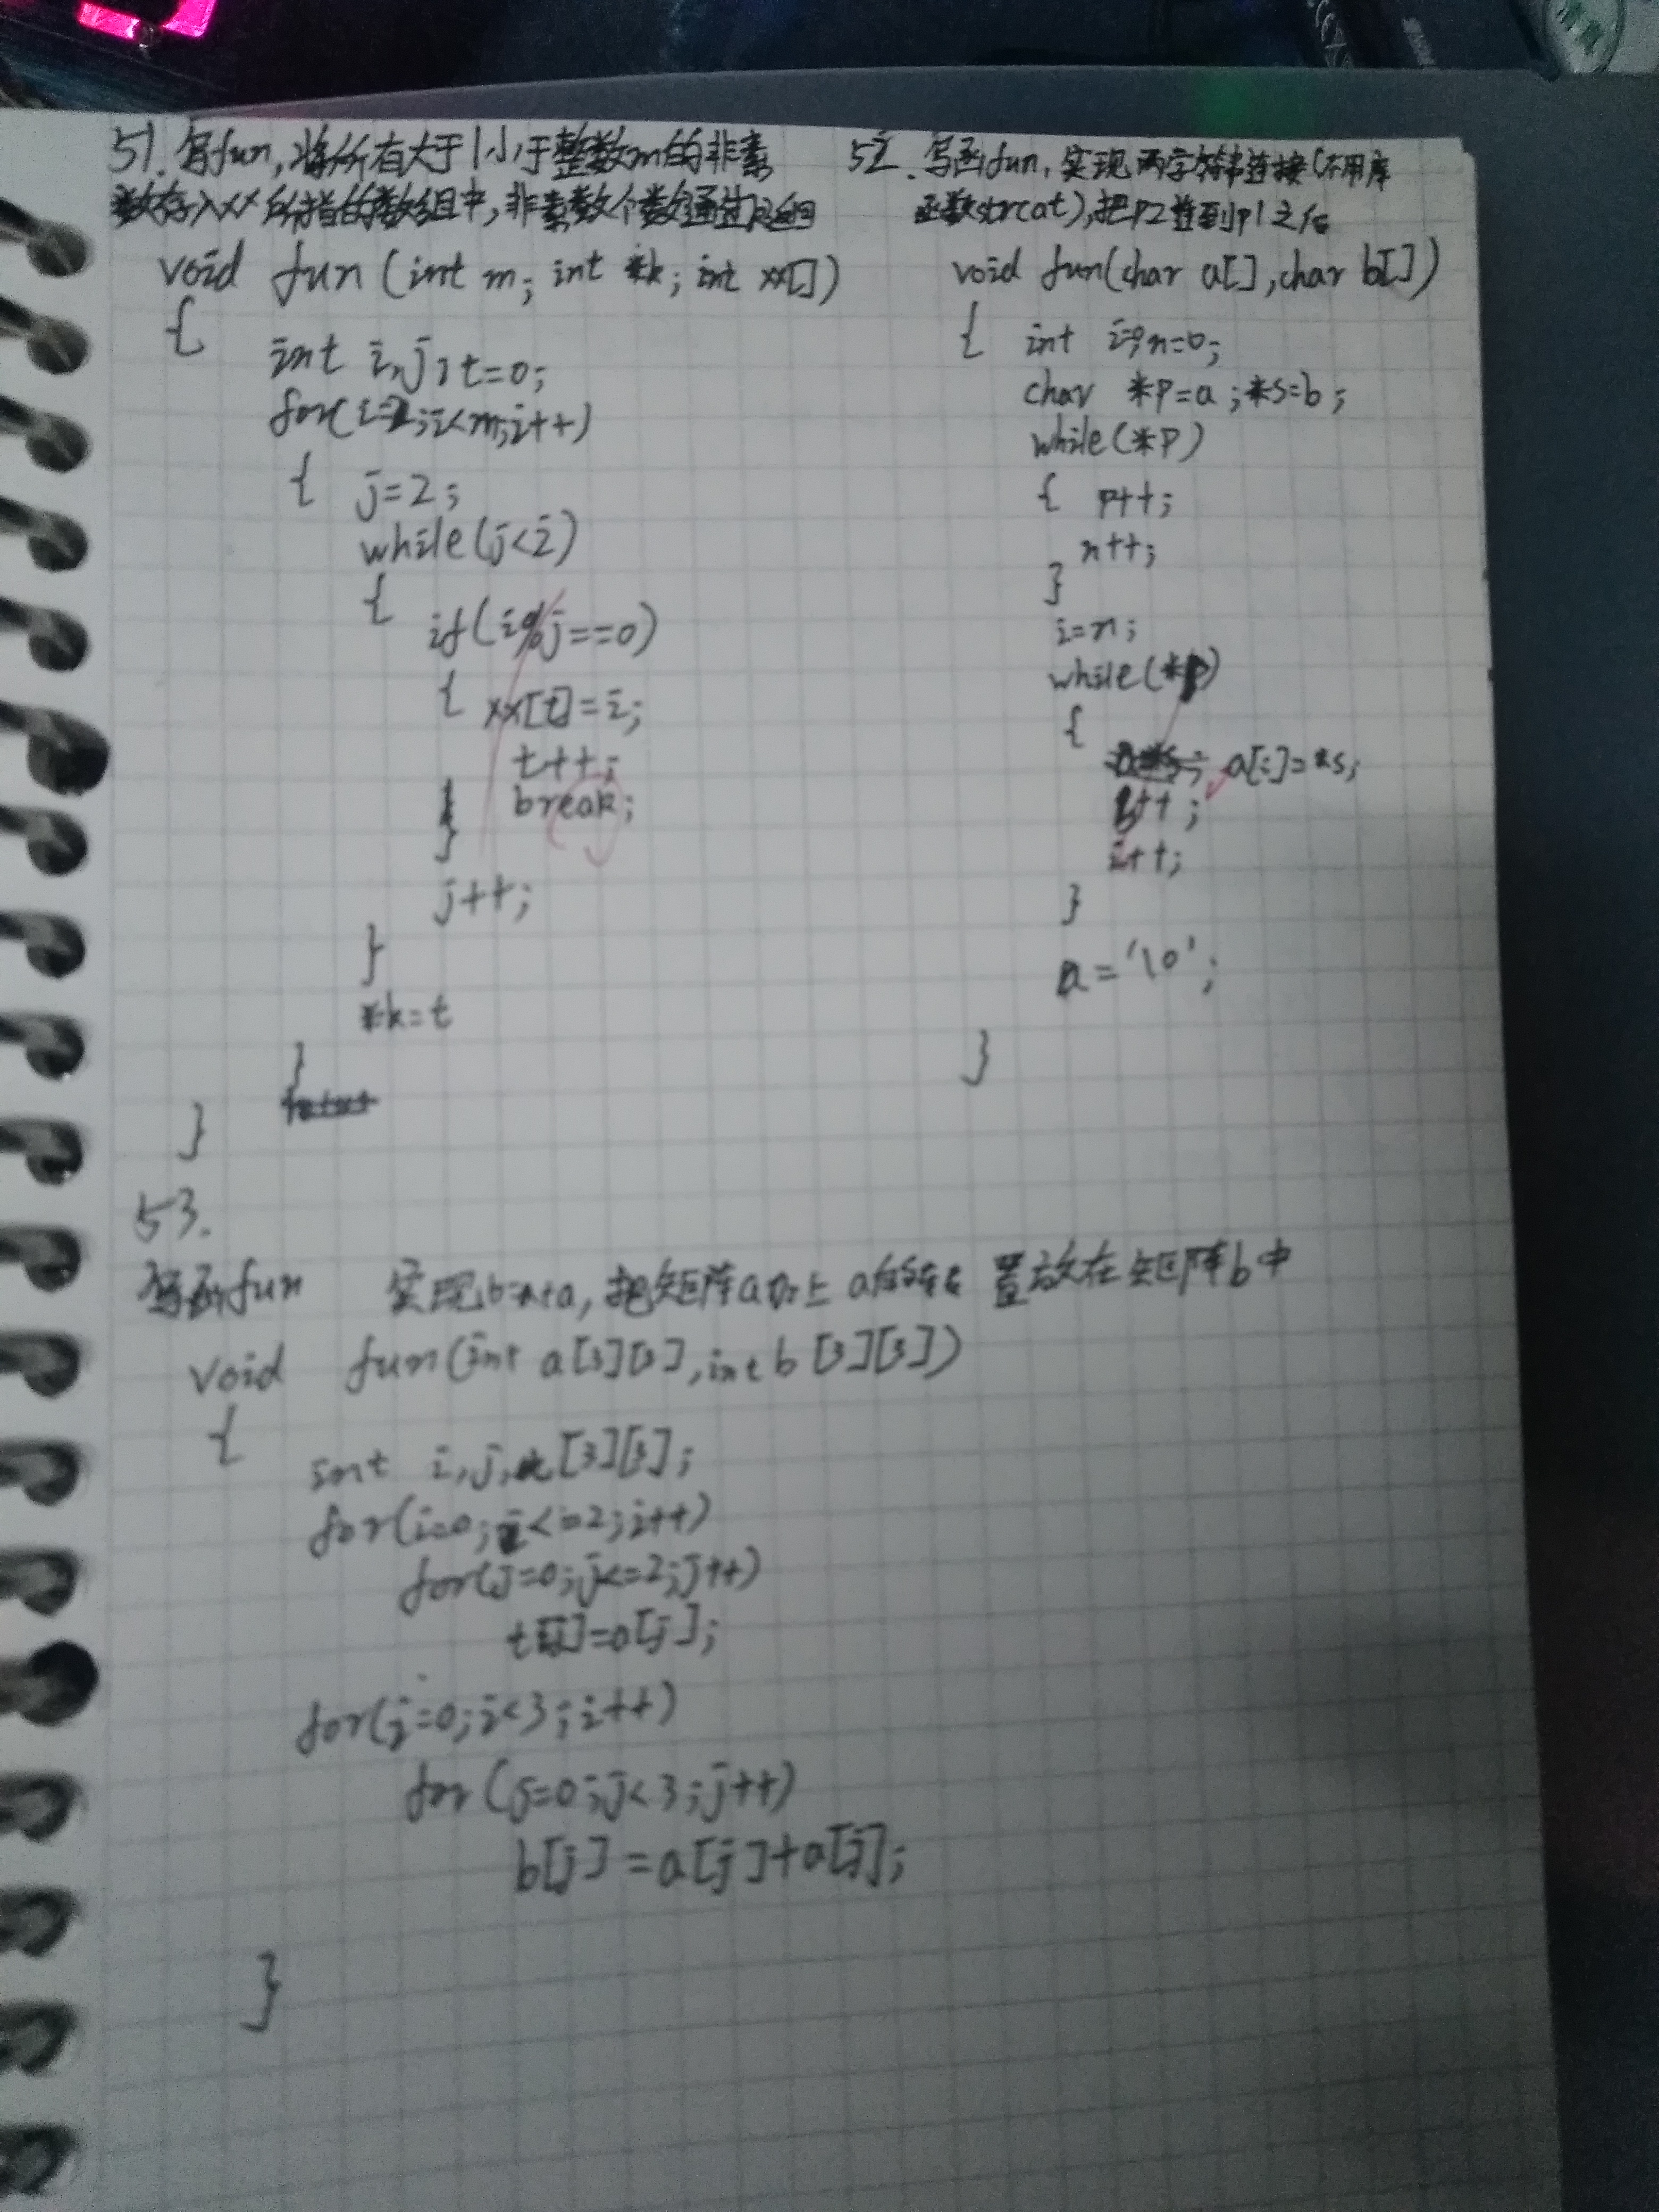 51. 写fun,将所有大于1小于整数m的非素
数存入xx所指的数组中,非素数个数通过k返回
void fun (int m; int *k; int xx[])
{
int i,j,t=0;
for(i=2;i<m;i++)
{ j=2;
while(j<i)
{ if(i%j==0)
{ xx[t]=i;
t++;
break;
}
j++;
}
*k=t
}
}
52. 写函fun,实现两字符串连接(不用库
函数strcat),把p2连到p1之后
void fun(char a[],char b[])
{ int i;n=0;
char *p=a;*s=b;
while(*p)
{ p++;
n++;
}
i=n;
while(*p)
{
a[i]=*s;
b++;
i++;
}
a='\0';
}
53.
写函fun 实现b=a+a,把矩阵a加上a的转置放在矩阵b中
void fun(int a[3][3],int b[3][3])
{
int i,j,t[3][3];
for(i=0;i<=2;i++)
for(j=0;j<=2;j++)
t[i]=a[j];
for(i=0;i<3;i++)
for(j=0;j<3;j++)
b[j]=a[j]+a[j];
}